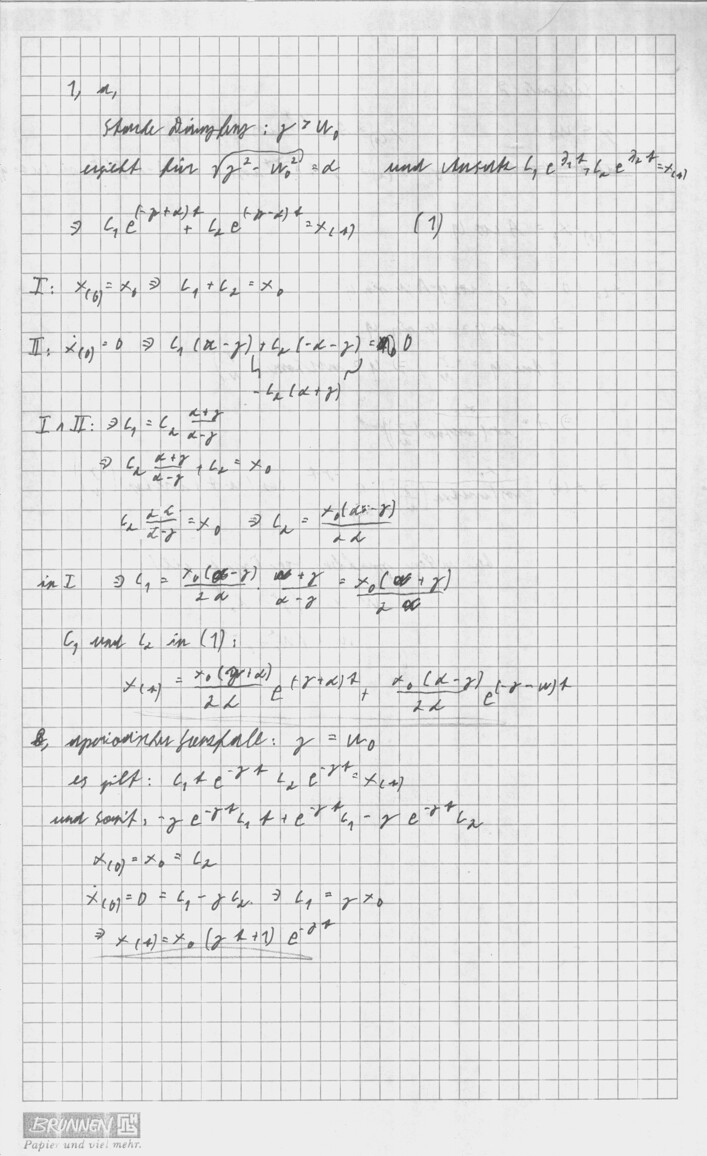 1, a,
Starke Dämpfung: γ > ω₀
ergibt für √(γ² - ω₀²) = α und Ansatz C₁ e^(λ₁ t) + C₂ e^(λ₂ t) = x(t)
⇒ C₁ e^((-γ+α) t) + C₂ e^((-γ-α) t) = x(t) (1)
I: x(0) = x₀ ⇒ C₁ + C₂ = x₀
II: ẋ(0) = 0 ⇒ C₁ (α - γ) + C₂ (-α - γ) = 0
- C₂ (α + γ)
I ∧ II: ⇒ C₁ = C₂ (α+γ)/(α-γ)
⇒ C₂ (α+γ)/(α-γ) + C₂ = x₀
C₂ 2α/(α-γ) = x₀ ⇒ C₂ = x₀(α-γ)/2α
in I ⇒ C₁ = x₀(α-γ)/2α · (α+γ)/(α-γ) = x₀(α+γ)/2α
C₁ und C₂ in (1):
x(t) = x₀(γ+α)/2α e^((-γ+α) t) + x₀(α-γ)/2α e^((-γ-α) t)
b, aperiodischer Grenzfall: γ = ω₀
es gilt: C₁ t e^(-γt) C₂ e^(-γt) = x(t)
und somit: -γ e^(-γt) C₁ t + e^(-γt) C₁ - γ e^(-γt) C₂
x(0) = x₀ = C₂
ẋ(0) = 0 = C₁ - γ C₂ ⇒ C₁ = γ x₀
⇒ x(t) = x₀ (γ t + 1) e^(-γt)
BRUNNEN
Papier und viel mehr.